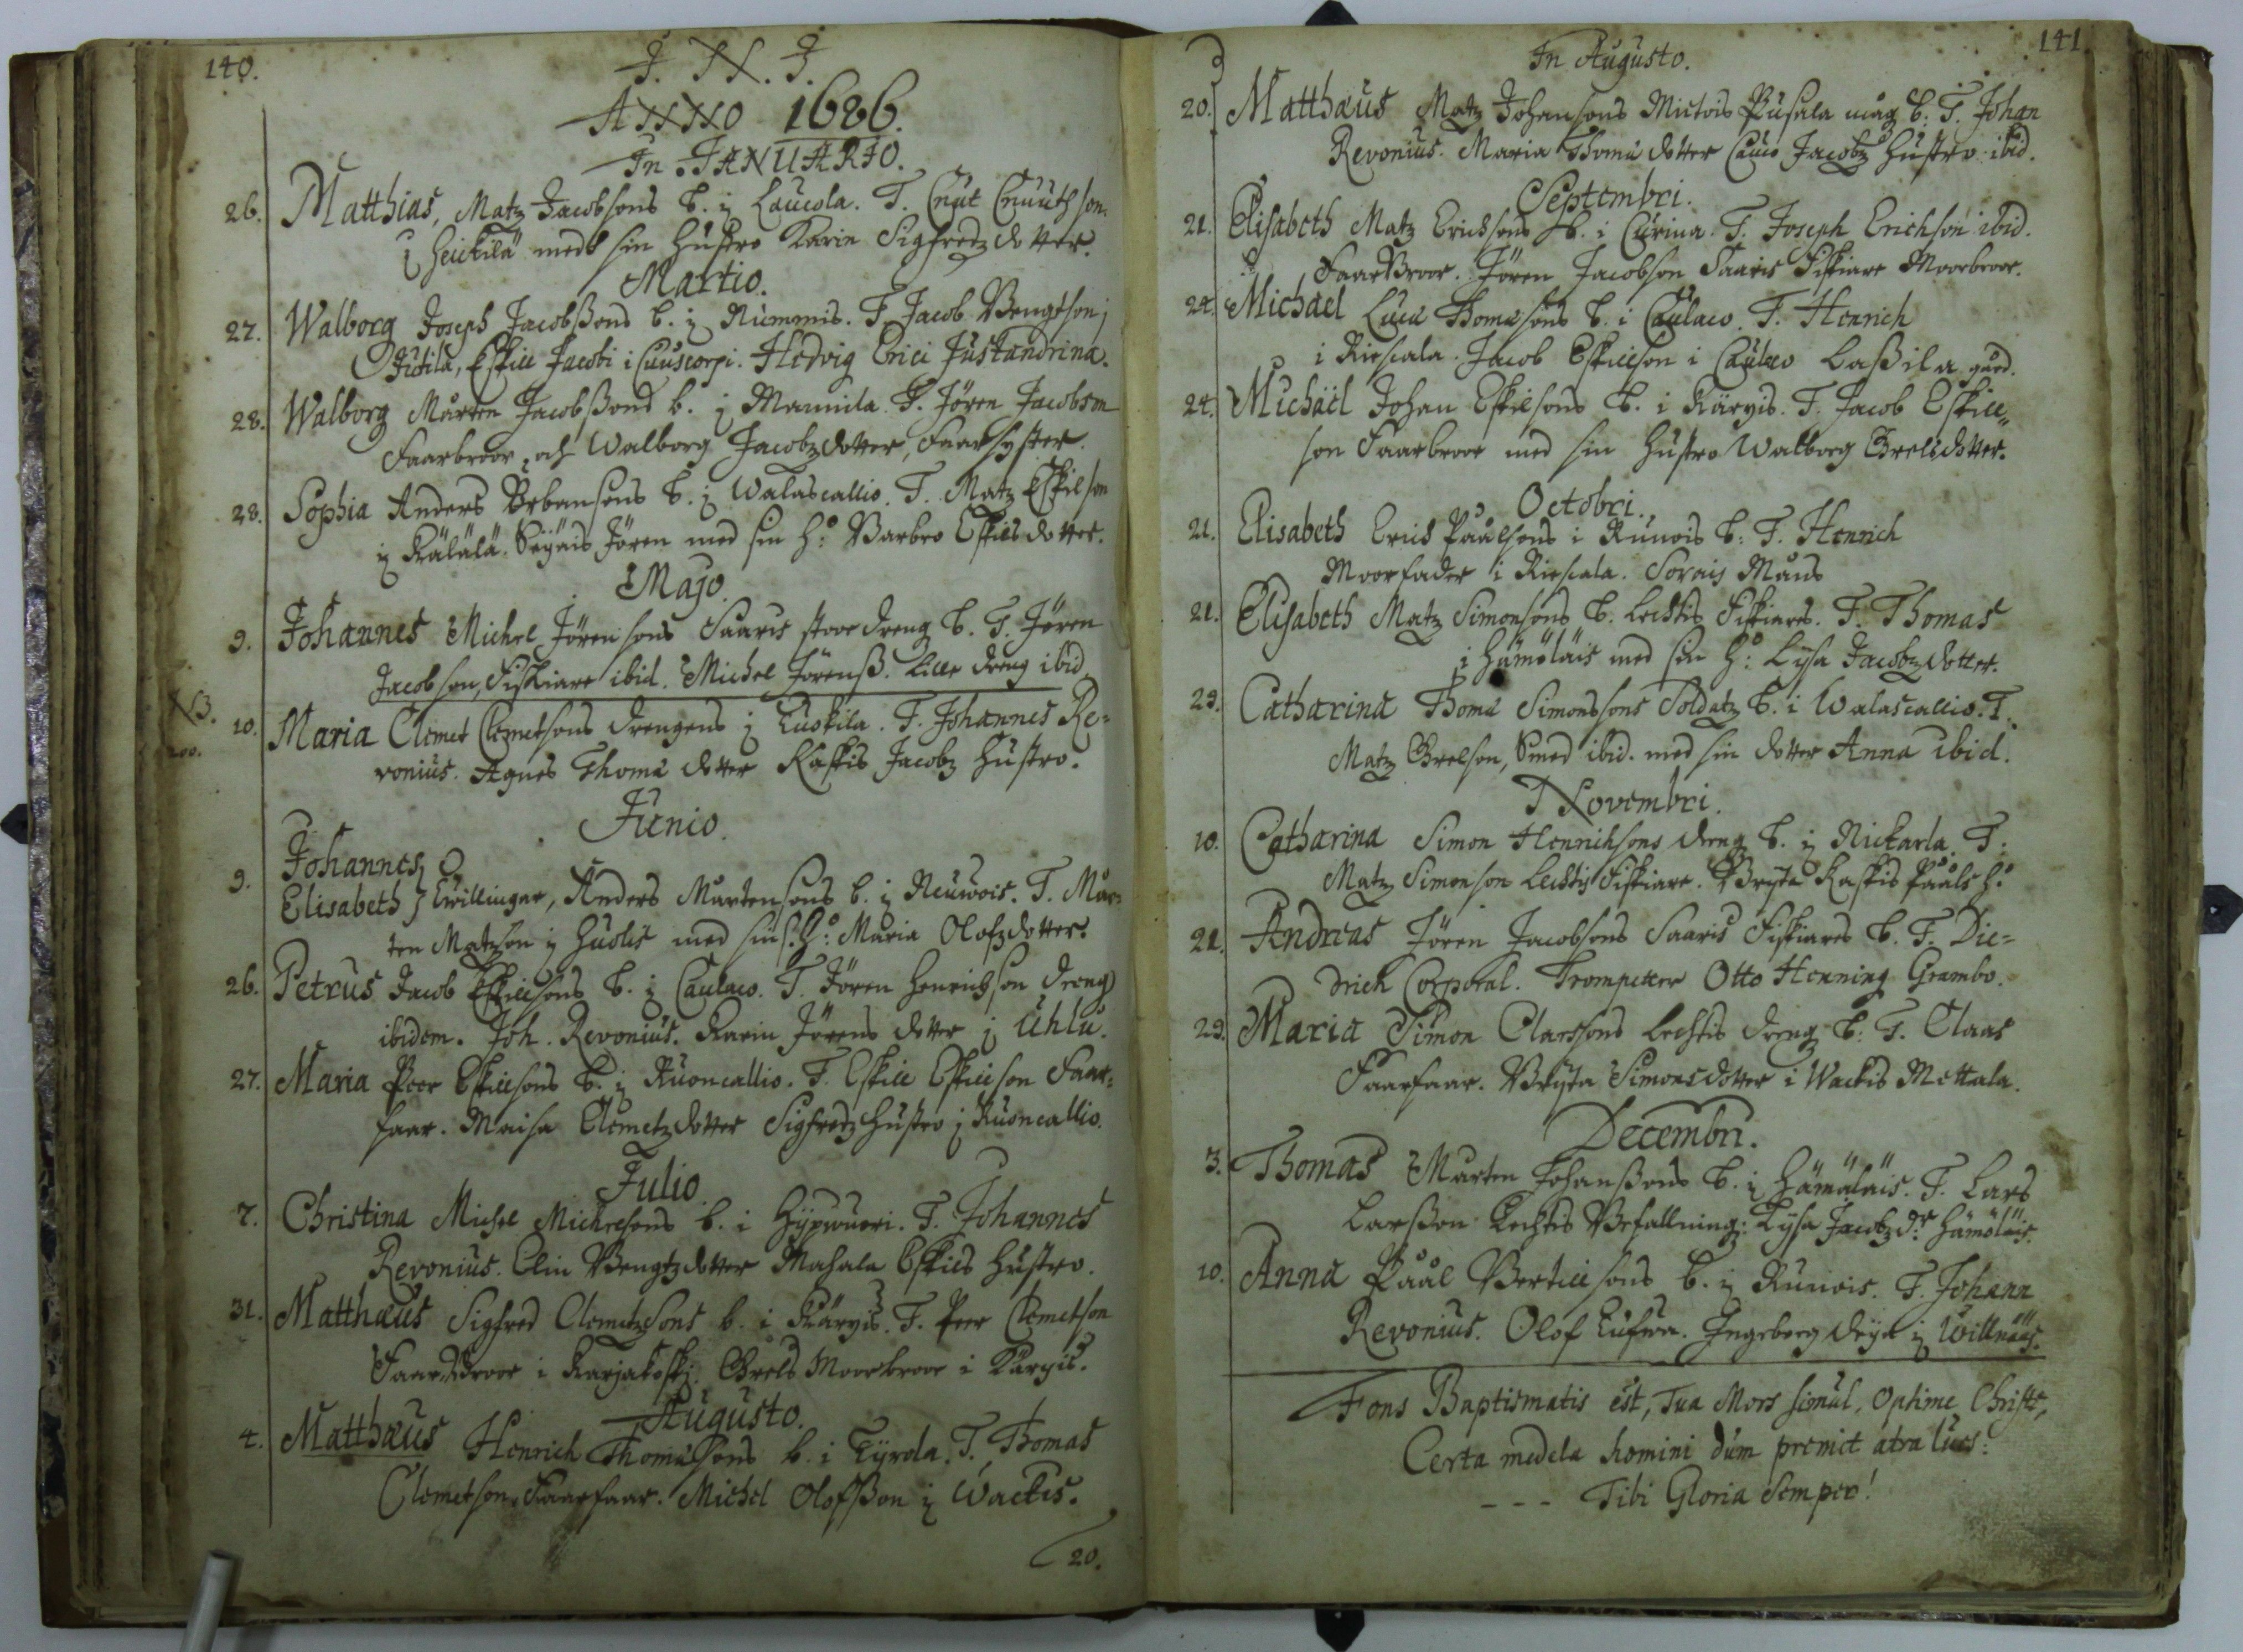 140.
J. N. J.
ANNO 1686.
In JANUARIO.
26. Matthias, Matz Jacobsons b. i Laucola. T. Cnut Cnuuthson
i Heickilä medh sin hustro Karin Sigfredzdotter.
Martio.
27. Walborg Joseph Jacobßons b. i Nummis. T. Jacob Bengtson i
Jutila, Eskill Jacobi i Cuuscorpi. Hedvig Erici Justandrina.
28. Walborg Mårten Jacobßons b. i Mannila. T. Jören Jacobson
Faarbroor, och Walborg Jacobzdotter, Faarsyster.
28. Sophia Anders Urbansons b. i Walascallio. T. Matz Eskilson
i Kälälä. Jören med sin H: Barbro Eskilsdotter.
Majo.
9. Johannes Michel Jörensons Saaris stoordreng b. T. Jören
Jacobson, Fiskiare ibid. Michel Jörenß. lille dreng ibid.
NB.
10. Maria Clemet Clemetsons drengens i Euskila. T. Johannes Re-
200.
vonius. Agnes Thomæ dotter Kaskis Jacobz hustro.
Junio.
Johannes
9. Elisabeth } twillingar, Anders Martensons b. i Neuwois. T. Mår-
ten Matzson i Huolis med sin S. H: Maria Olofzdotter.
26. Petrus Jacob Eskillsons b. i Caulaco. T. Jören Henrichson dreng
ibidem. Joh. Revonius. Karin Jörens dotter i Uhlu.
27. Maria Peer Eskillsons b. i Ruoncallio. T. Eskill Eskillson Faar-
faar. Maisa Clemetzdotter Sigfredz hustro i Ruoncallio.
Julio.
7. Christina Michel Michelsons b. i Hypwuori. T. Johannes
Revonius. Elin Bengtzdotter Mahala Eskils hustro.
31. Matthæus Sigfred ClemetzSons b. i Käryis. T. Peer Clemetson
FaarBroor i Karjakoski. Grels Moorbroor i Käryis.
Augusto.
4. Matthæus Henrich Thomæsons b. i Tyrola. T. Thomas
Clemetson, Faarfaar. Michel Olofßon i Wackis.
20.
141.
In Augusto.
20. Matthæus Matz Johansons Mictois Pusala måg b. T. Johan
Revonius. Maria Thomæ dotter Cauco Jacobz hustro ibid.
Septembri.
21. Elisabeth Matz Ericksons b. i Curina. T. Joseph Erichson ibid.
FaarBroor. Jören Jacobson Saaris Fiskiare Moorbroor.
24. Michaël Lucæ Thomæsons b. i Caulaco. T. Henrich
i Riescala. Jacob Eskillson i Caulaco Laßila gård.
24. Michaël Johan Eskilsons b. i Käryis. T. Jacob Eskill-
son Faarbroor med sin hustro Walborg Grelsdotter.
Octobri.
21. Elisabeth Erich Påålsons i Runois b. T. Henrich
Moorfader i Riescala. Måns
21. Elisabeth Matz Simonsons b. Lechtis Fiskiares. T. Thomas
i Hämöläis med sin H: Lysa Jacobzdotter.
29. Catharina Thomæ Simonssons Soldatz b. i Walascallio. T.
Matz Grelson, Smed ibid. med sin dotter Anna ibid.
Novembri.
10. Catharina Simon Henrichsons dreng b. i Nickarla. T.
Matz Simonson Lechtis Fiskiare. Bryta Kaskis Pååls H:
21. Andreas Jören Jacobsons Saaris Fiskiares b. T. Die-
drich Corporal. Trompetter Otto Henning Grambo.
29. Maria Simon Clarssons Lechtis dreng b. T. Claas
Faarfaar. Bryta Simonsdotter i Wackis Mettala.
Decembri.
3. Thomas Marten Johanßons b. i Hämäläis. T. Lars
Larßon Lechtis Befallning: Lysa Jacobzdr Hämöläis.
10. Anna Påål Bertillsons b. i Runois. T. Johann
Revonius. Olof Ingeborg deya i Willnääs.
Fons Baptismatis est, Tua Mors simul, Optime Christe,
Certa medela homini dum premit atra lues:
- - - Tibi Gloria Semper!